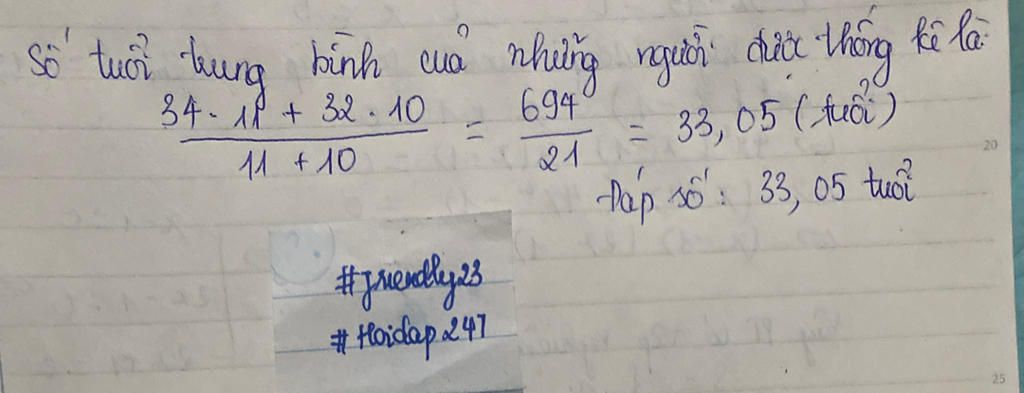 Số tuổi trung bình của những người được thống kê là:
34 . 11 + 32 . 10 / 11 + 10 = 694 / 21 = 33,05 (tuổi)
Đáp số : 33,05 tuổi
#friendly23
#Hoidap247
20
25